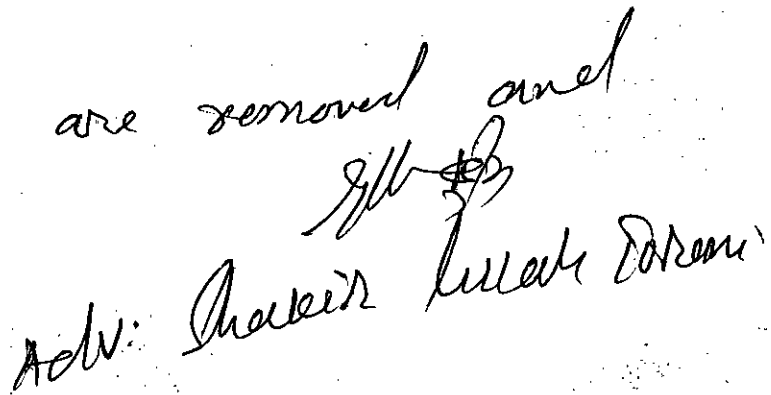 are removed and
Adv: Shakir Ullah Torani